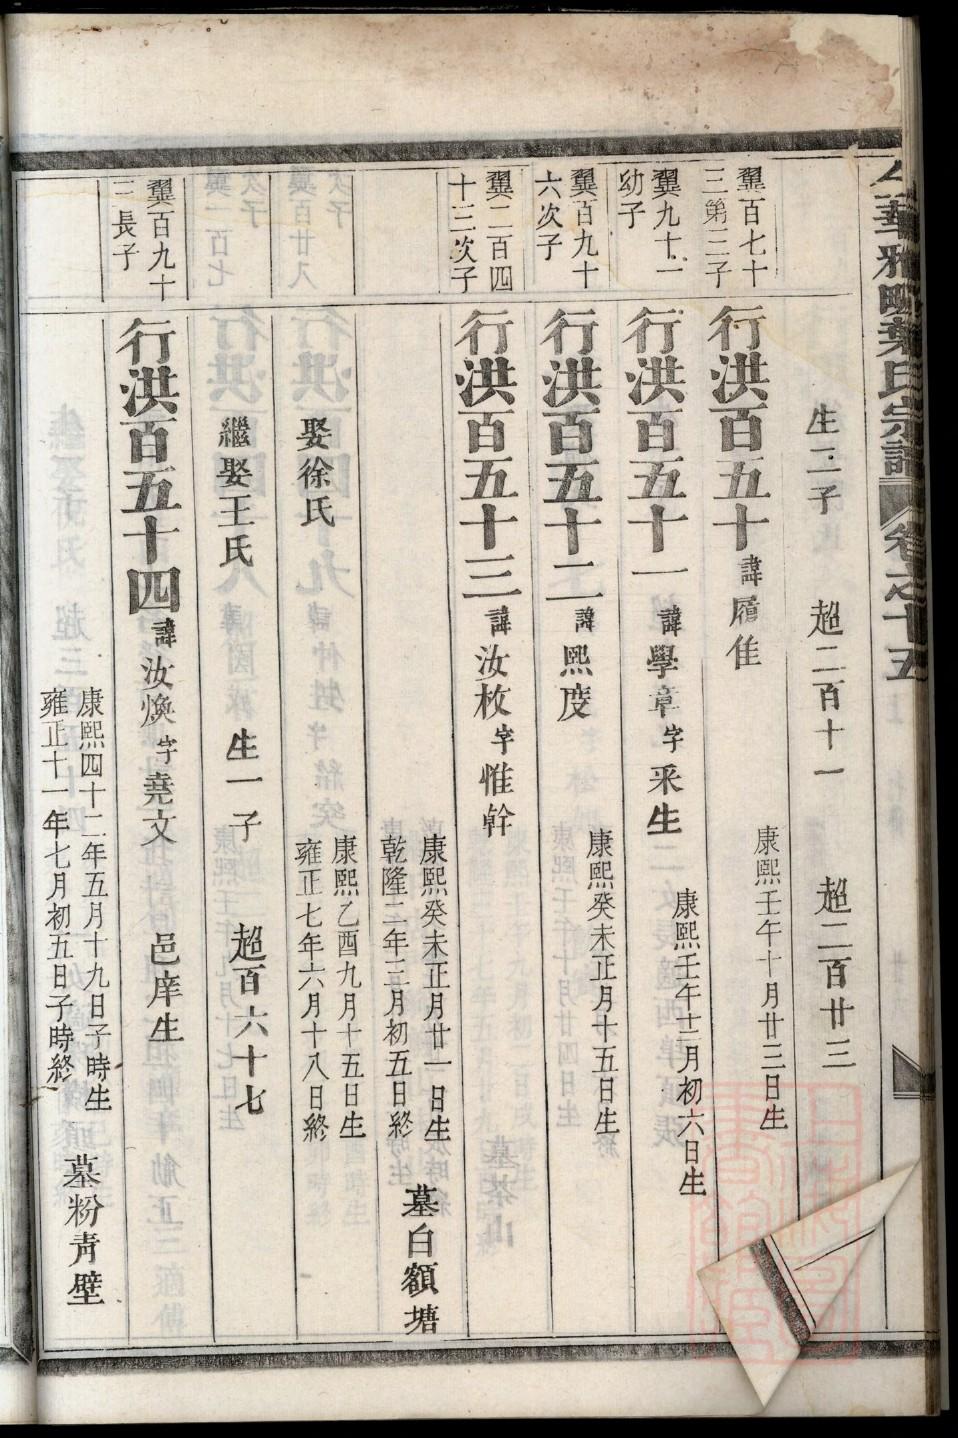 金華雅畈葉氏宗譜 卷之十五
生二子 超二百十一 超二百廿三
翼百七十三第三子
行洪百五十 諱履隹
康熙壬午十月廿三日生
翼九十一幼子
行洪百五十一 諱學章 字采生
康熙壬午十二月初六日生
翼百九十六次子
行洪百五十二 諱熙度
康熙癸未正月十五日生
翼二百四十三次子
行洪百五十三 諱汝枚 字惟幹
康熙癸未正月廿一日生
乾隆二年三月初五日終
墓白額塘
娶徐氏
康熙乙酉九月十五日生
雍正七年六月十八日終
繼娶王氏 生一子 超百六十七
翼百九十三長子
行洪百五十四 諱汝煥 字堯文 邑庠生
康熙四十二年五月十九日子時生
雍正十一年七月初五日子時終
墓粉青壁